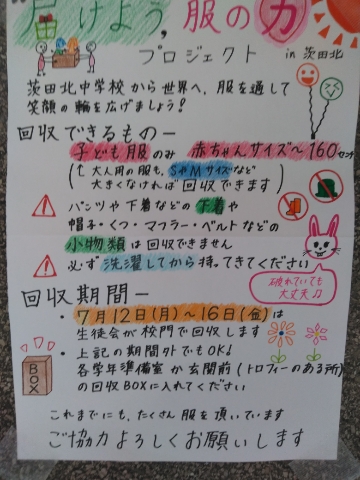 届けよう,服の力
プロジェクト in 茨田北
茨田北中学校から世界へ、服を通して
笑顔の輪を広げましょう!
回収できるもの―
子ども服のみ 赤ちゃんサイズ〜160センチ
(↑大人用の服も、SやMサイズなど
大きくなければ回収できます)
パンツや下着などの下着や
帽子・くつ・マフラー・ベルトなどの
小物類は回収できません
必ず洗濯してから持ってきてください
破れていても
大丈夫♪
回収期間―
・7月12日(月)〜16日(金)は
生徒会が校門で回収します
・上記の期間外でもOK!
各学年準備室か玄関前(トロフィーのある所)
の回収BOXに入れてください
BOX
これまでにも、たくさん服を頂いています
ご協力よろしくお願いします